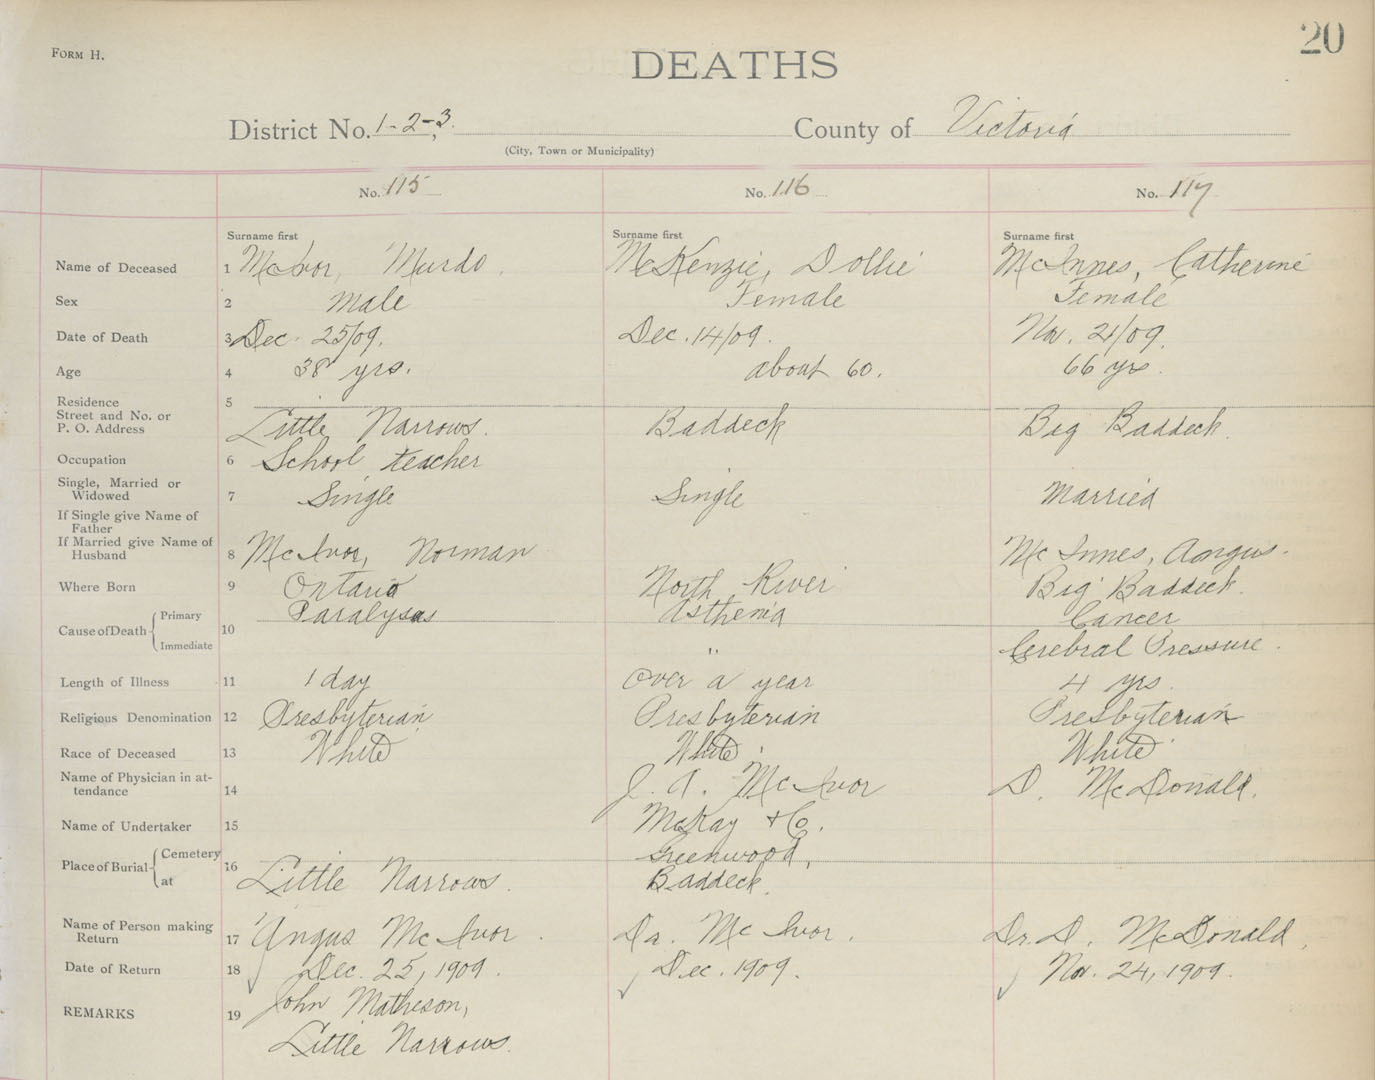 20
FORM H.
DEATHS
District No. 1-2-3. County of Victoria
(City, Town or Municipality)
No. 115 No. 116 No. 117
Surname first Surname first Surname first
Name of Deceased 1 McIvor, Murdo. McKenzie, Dollie McInnes, Catherine
Sex 2 Male Female Female
Date of Death 3 Dec. 25/09. Dec. 14/09. Nov. 21/09.
Age 4 38 yrs. about 60. 66 yrs.
Residence 5
Street and No. or
P. O. Address Little Narrows. Baddeck Big Baddeck.
Occupation 6 School teacher
Single, Married or
Widowed 7 Single Single Married
If Single give Name of
Father
If Married give Name of
Husband 8 McIvor, Norman McInnes, Angus.
Where Born 9 Ontario North River Big Baddeck.
Cause of Death Primary 10 Paralysis Asthenia Cancer
Immediate " Cerebral Pressure.
Length of Illness 11 1 day over a year 4 yrs.
Religious Denomination 12 Presbyterian Presbyterian Presbyterian
Race of Deceased 13 White White. White
Name of Physician in at-
tendance 14 J. A. McIvor D. McDonald.
Name of Undertaker 15 McKay & Co.
Place of Burial Cemetery 16 Greenwood,
at Little Narrows. Baddeck.
Name of Person making
Return 17 Angus McIvor. Da. McIvor. Dr. D. McDonald,
Date of Return 18 Dec. 25, 1909. Dec. 1909. Nov. 24, 1909.
REMARKS 19 John Matheson,
Little Narrows.